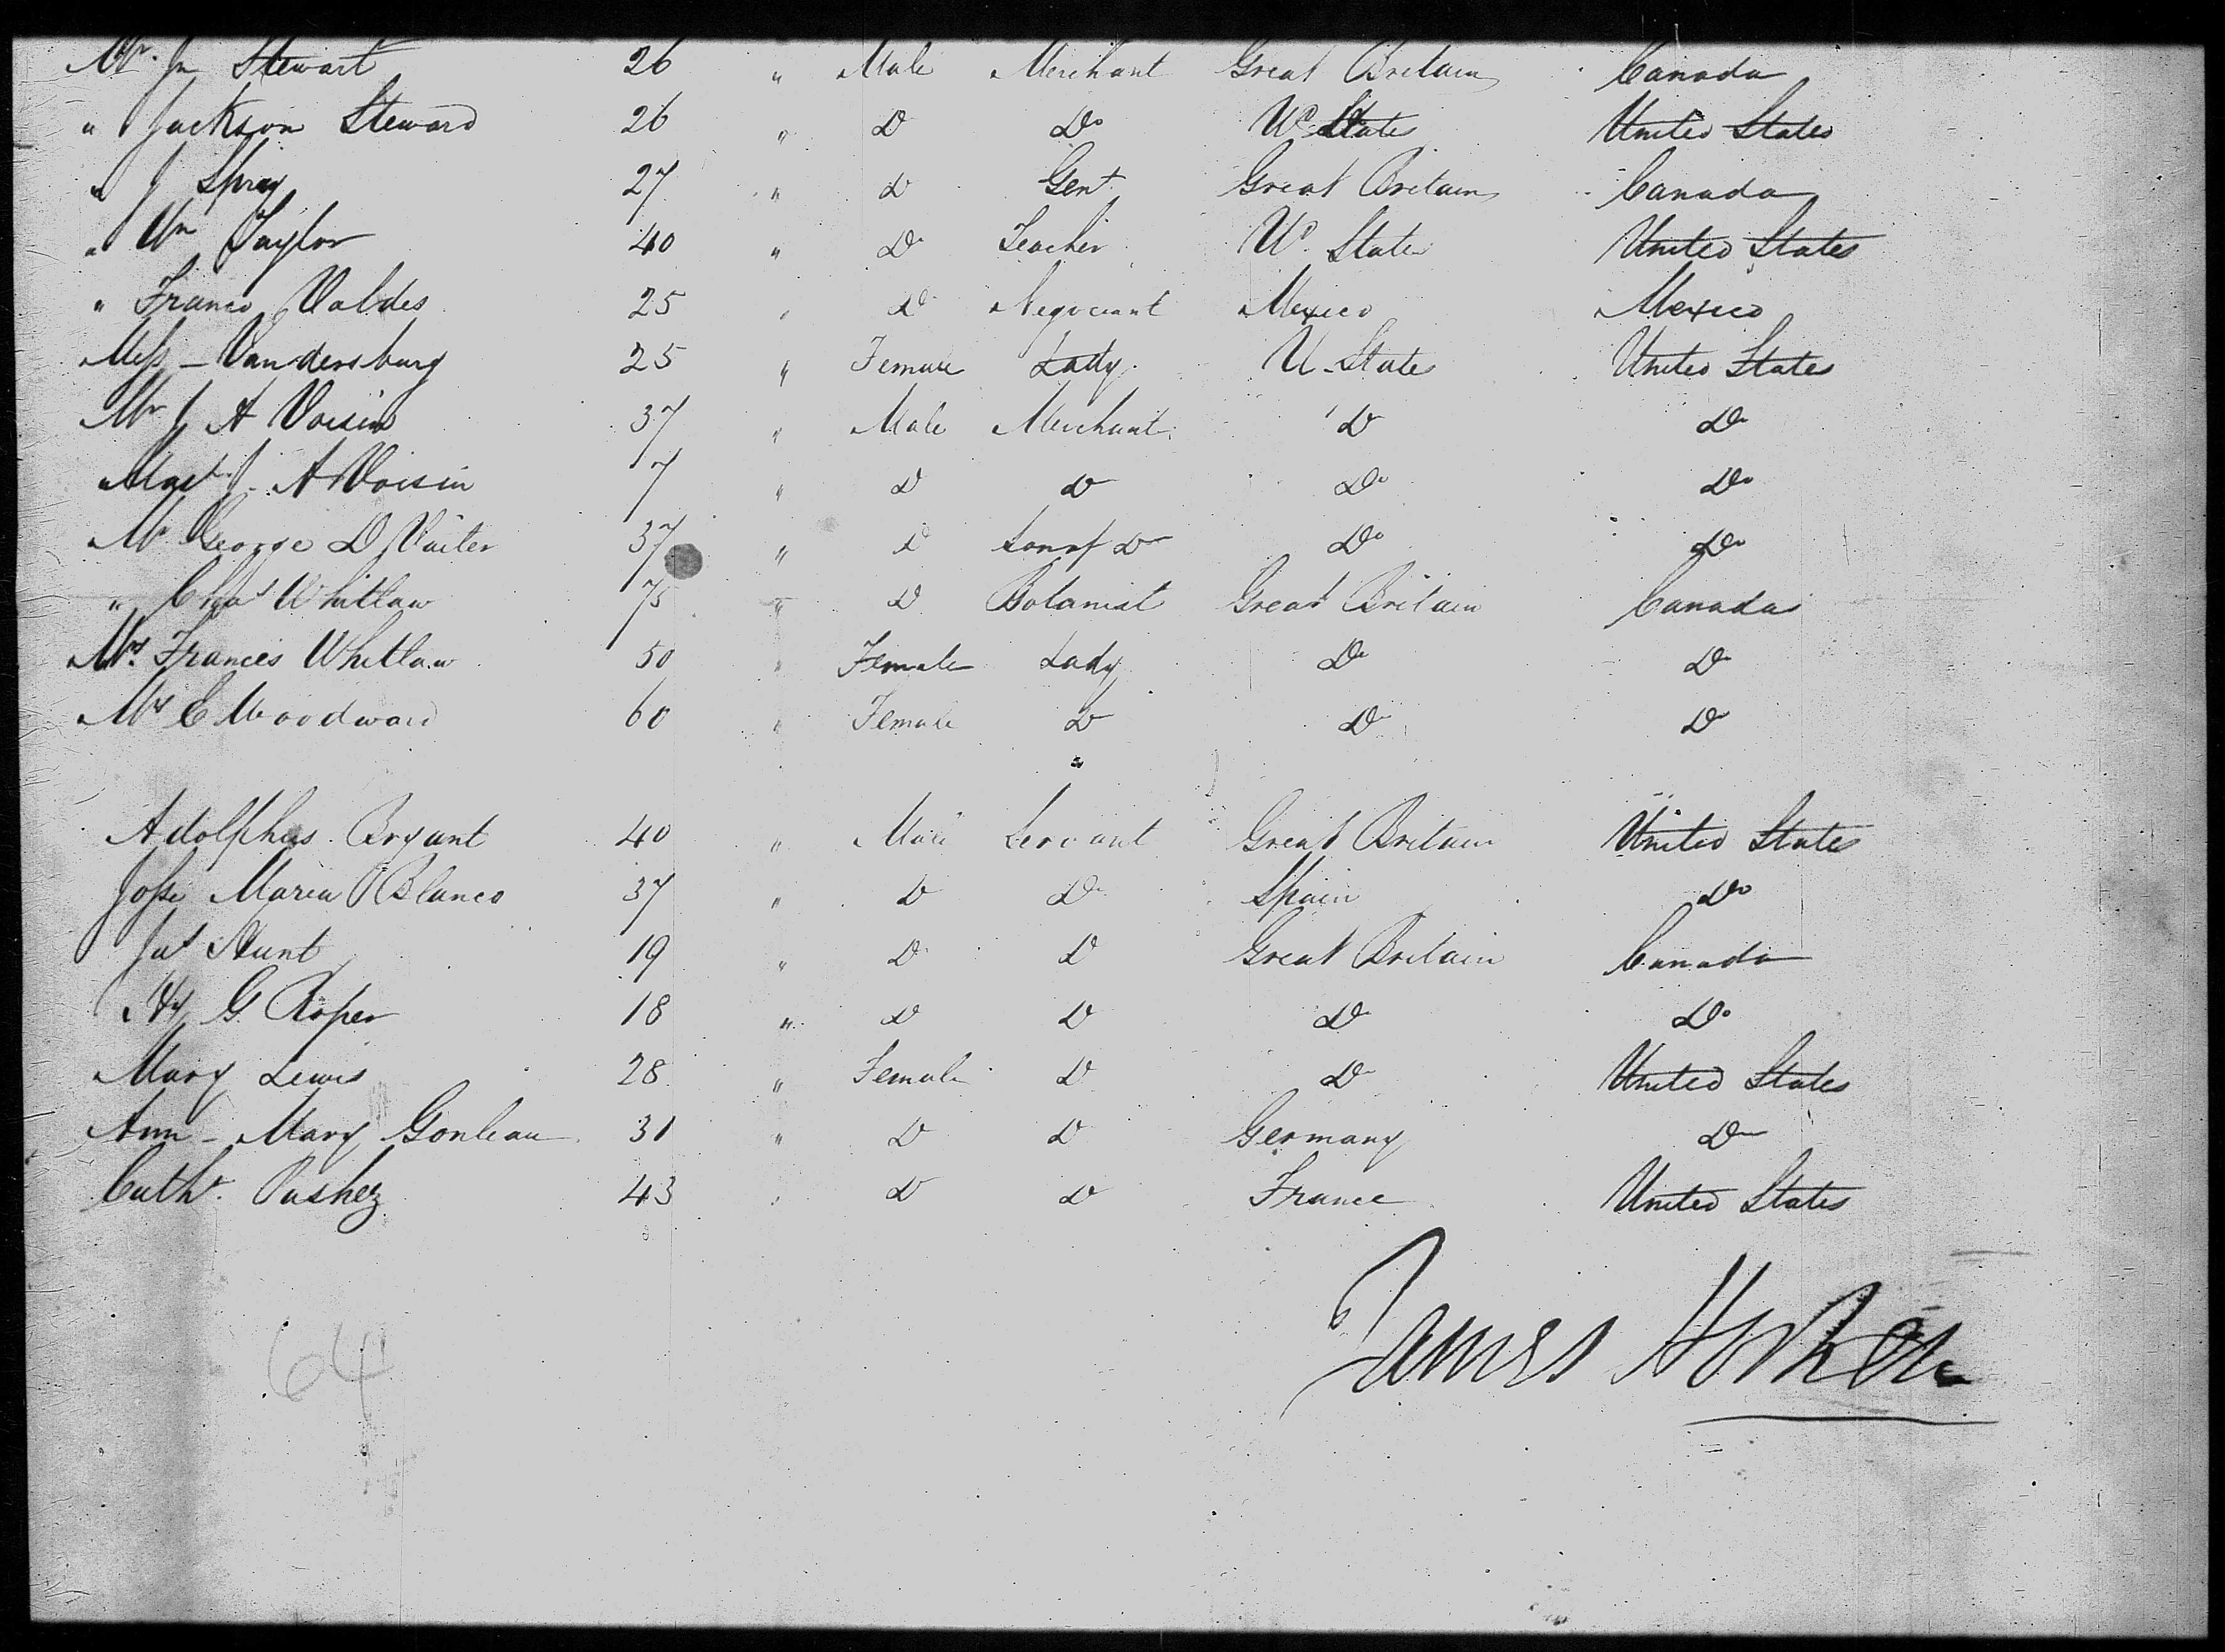 Mr. Jn Stewart 26 " Male Merchant Great Britain Canada
" Jackson Steward 26 " Do Do Ud States United States
" J Spray 27 " Do Gent Great Britain Canada
" Wm Taylor 40 " Do Teacher Ud States United States
" Franco Valdes 25 " Do Negociant Mexico Mexico
Miss - Vandersburg 25 " Female Lady U States United States
Mr J A Voisin 37 " Male Merchant Do Do
Mast J. A Voisin 7 " Do Do Do Do
Mr George D 37 " Do Do Do Do
" Chas Whitlaw 75 " Do Botanist Great Britain Canada
Mrs. Frances Whitlaw 50 " Female Lady Do Do
Mrs E Woodward 60 " Female Do Do Do
"
Adolphus Bryant 40 " Male Servant Great Britain United States
Josse Maria Blanco 37 " Do Do Spain Do
Jas Hunt 19 " Do Do Great Britain Canada
Hy G. Roper 18 " Do Do Do Do
Mary Lewis 28 " Female Do Do United States
Ann - Mary Gonleau 31 " Do Do Germany Do
Cathe. Pashez 43 " Do Do France United States
James Hosken
64